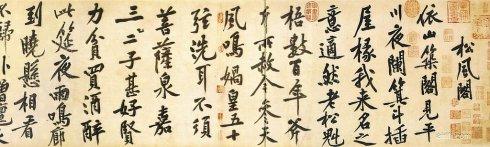 松風閣
依山築閣見平
川夜闌箕斗插
屋椽我來名之
意適然老松魁
梧數百年斧
斤所赦今參天
風鳴媧皇五十
弦洗耳不須
菩薩泉嘉
三二子甚好賢
力貧買酒醉
此筵夜雨鳴廊
到曉懸相看
不歸臥僧氈